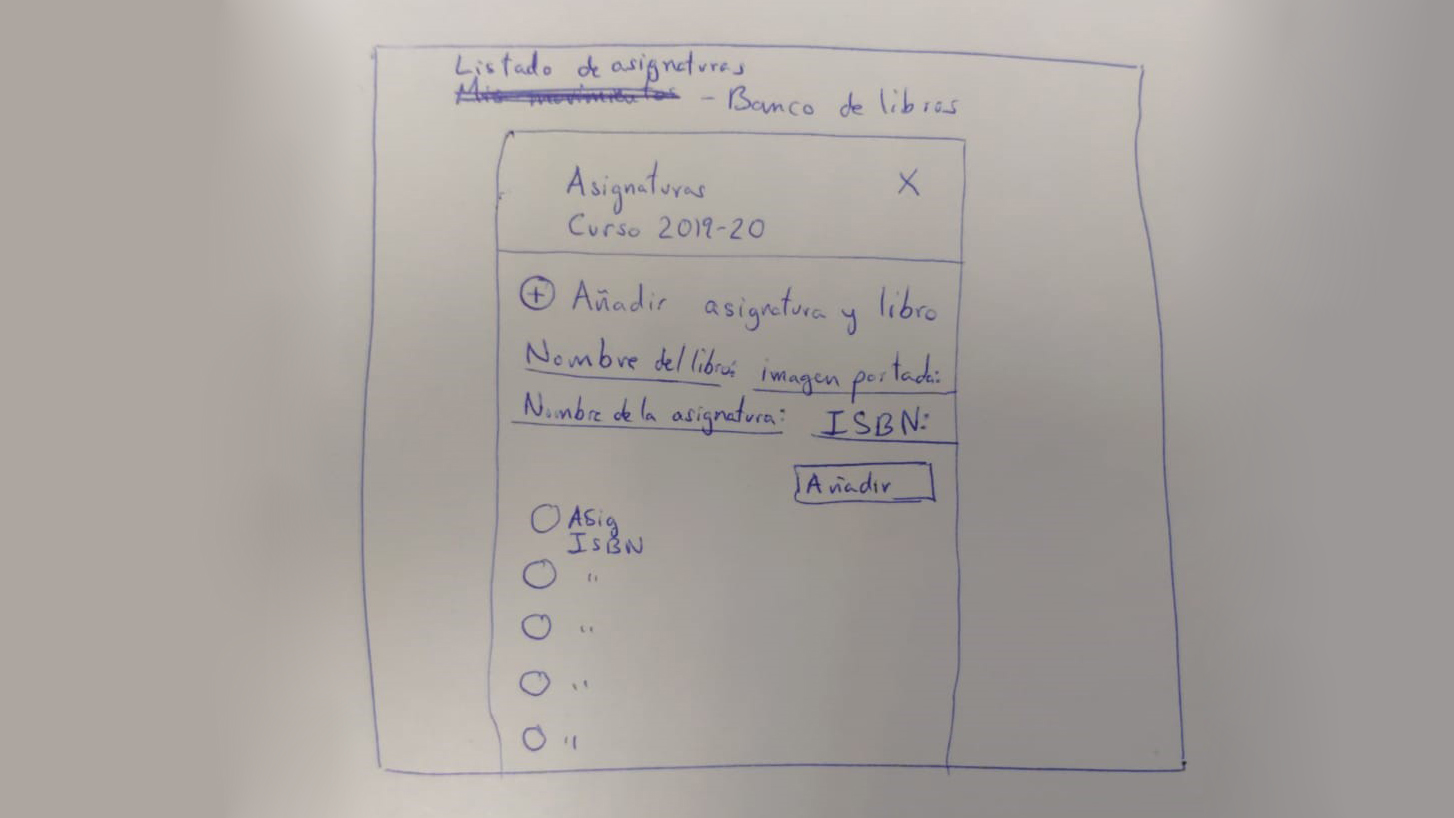 Listado de asignaturas
Mis movimientos - Banco de libros
Asignaturas X
Curso 2019-20
+ Añadir asignatura y libro
Nombre del libro: imagen portada:
Nombre de la asignatura: ISBN:
Añadir
ASig
ISBN
"
"
"
"